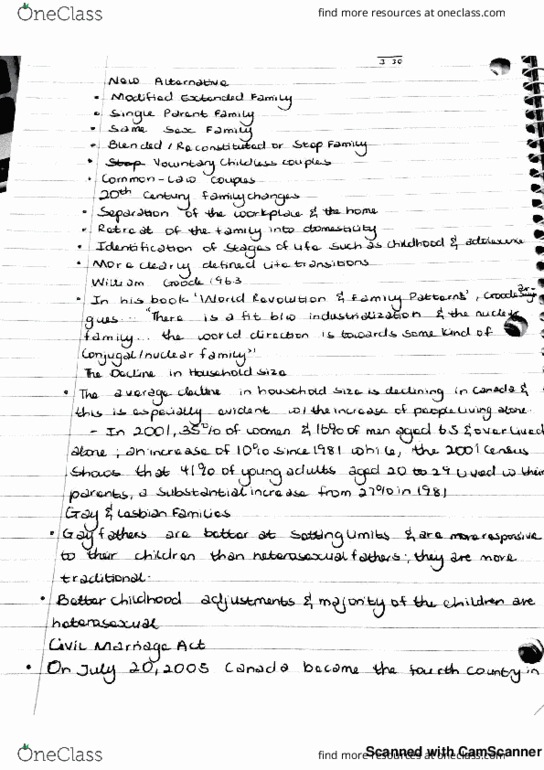 OneClass
find more resources at oneclass.com
3 30
New Alternative
• Modified Extended Family
• Single Parent Family
• Same Sex Family
• Blended / Reconstituted or Step Family
• Step Voluntary Childless couples
• Common-Law Couples
20th Century family changes
• Separation of the workplace & the home
• Retreat of the family into domesticity
• Identification of stages of life such as childhood &
• More clearly defined life transitions
William Goode 1963
• In his book 'World Revolution & Family Patterns', Goode ar-
gues... "There is a fit b/w industrialization & the nuclear
family... the world direction is towards some kind of
conjugal/nuclear family"
The Decline in Household size
• The average decline in household size is declining in Canada &
this is especially evident w/ the increase of people living alone.
- In 2001, 35% of women & 16% of men aged 65 & over lived
alone; an increase of 10% since 1981 while, the 2001 census
shows that 41% of young adults aged 20 to 29 lived w their
parents, a substantial increase from 27% in 1981
Gay & Lesbian Families
• Gay fathers are better at setting limits & are more responsive
to their children than heterosexual fathers; they are more
traditional.
• Better childhood adjustments & majority of the children are
heterosexual
Civil Marriage Act
• On July 20, 2005 Canada became the fourth country in
OneClass
find more resources at oneclass.com
Scanned with CamScanner